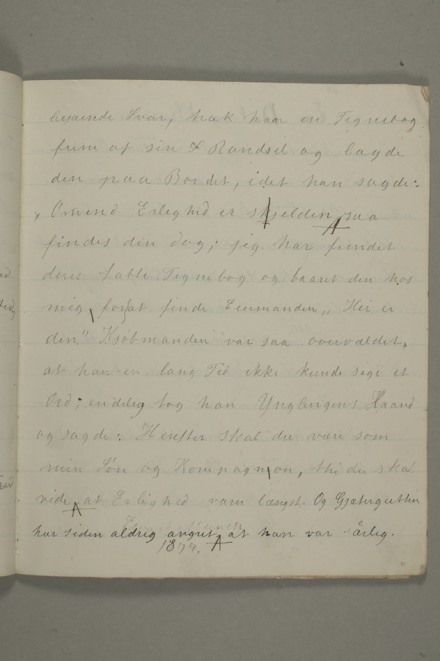 bejaende Svar, trak han en Tegnebog
frem af sin Randsel og lagde
den paa Bordet, idet han sagde:
„Omend Erlighed er skjelden, saa
findes den dog; jeg har fundet
deres tabte Tegnebog og baaret den hos
mig, for at finde Eiermanden, „Her er
den." Kjøbmanden var saa overvældet,
at han en lang Tid ikke kunde sige et
Ord; endelig tog han Ynglingens Haand
og sagde: Herefter skal du være som
min Søn og Kompagnon, thi du skal
vide, at Erlighed varer længst. Og Gjætergutten
har siden aldrig angret, at han var ærlig.
1877.